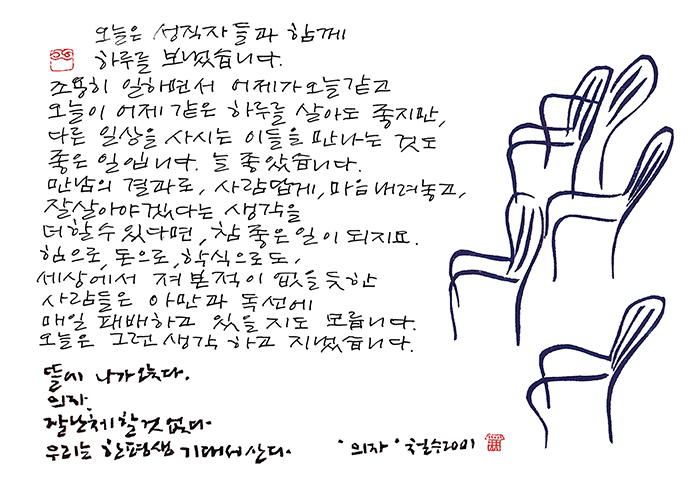 오늘은 성직자들과 함께
하루를 보냈습니다.
조용히 일해면서 어제가 오늘같고
오늘이 어제 같은 하루를 살아도 좋지만,
다른 일상을 사시는 이들을 만나는 것도
좋은 일입니다. 늘 좋았습니다.
만남의 결과로, 사람답게, 마음 내려놓고,
잘살아야겠다는 생각을
더 할 수 있다면, 참 좋은 일이 되지요.
힘으로, 돈으로, 학식으로도,
세상에서 져 본적이 없을 듯한
사람들은 아만과 독선에
매일 패배하고 있을지도 모릅니다.
오늘은 그런 생각 하고 지냈습니다.
뜰에 나가 앉다.
의자.
잘난체 할것 없다.
우리는 한평생 기대서 산다.
'의자' 철수2001